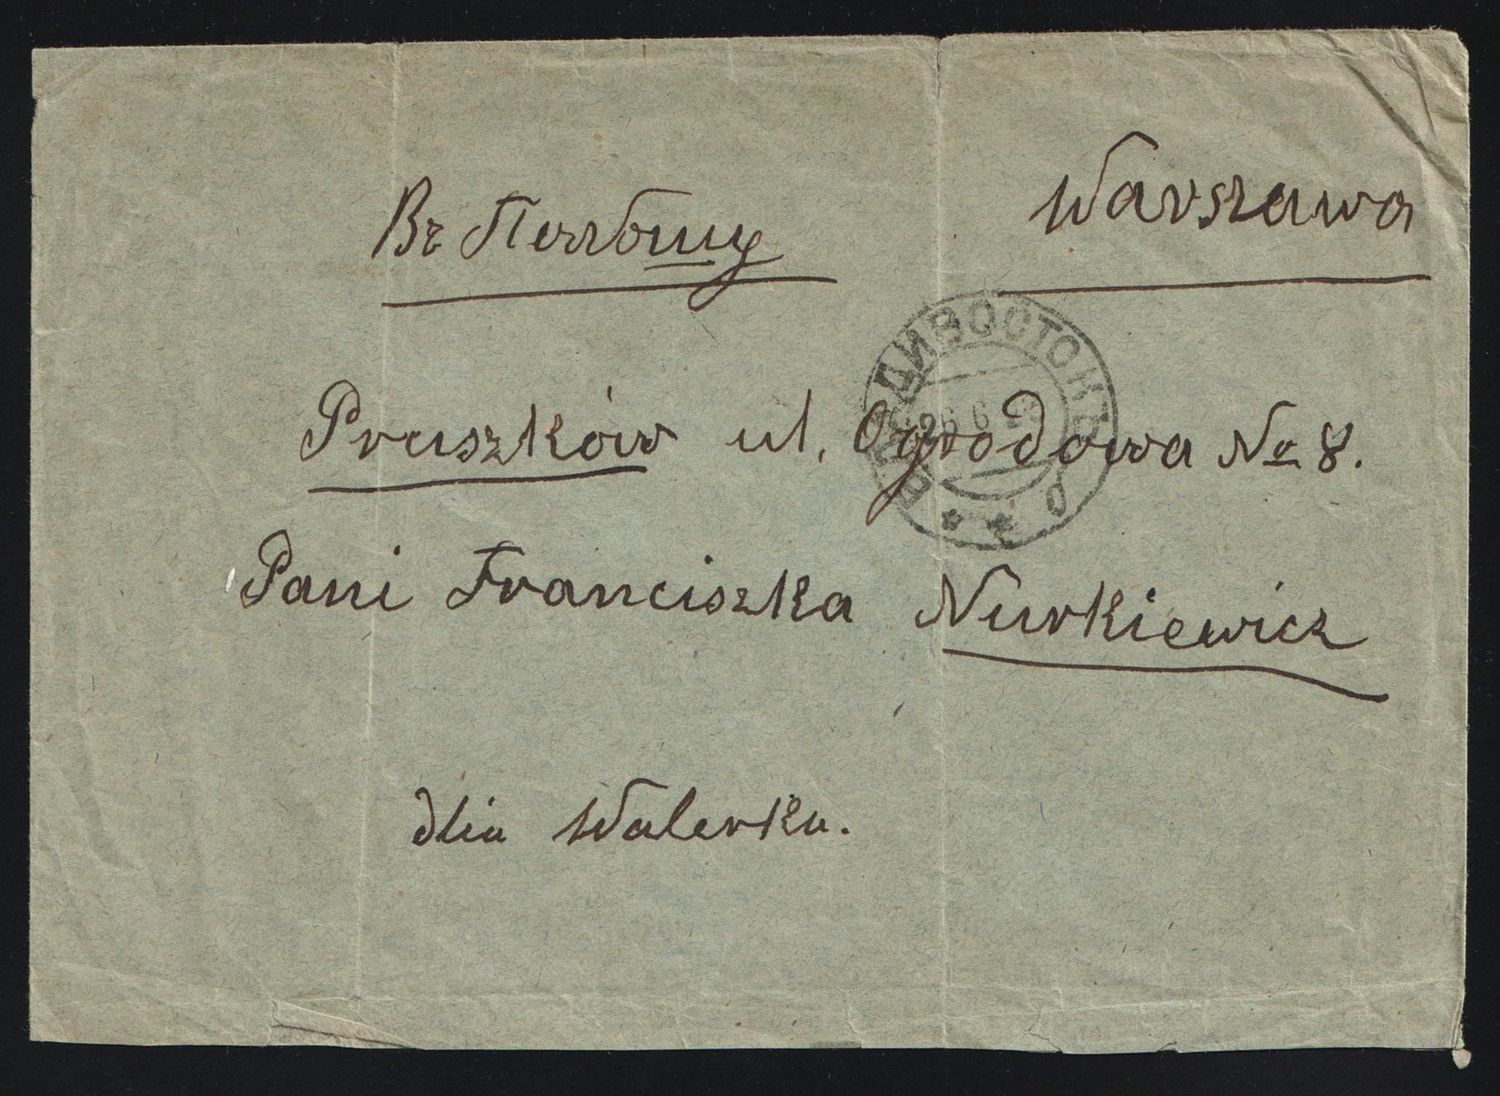 Въ Польшу
Warszawa
Pruszków ul. Ogrodowa № 8.
Pani Franciszka Nurkiewicz
dlia Walerka.
ВЛАДИВОСТОКЪ
26 6 2